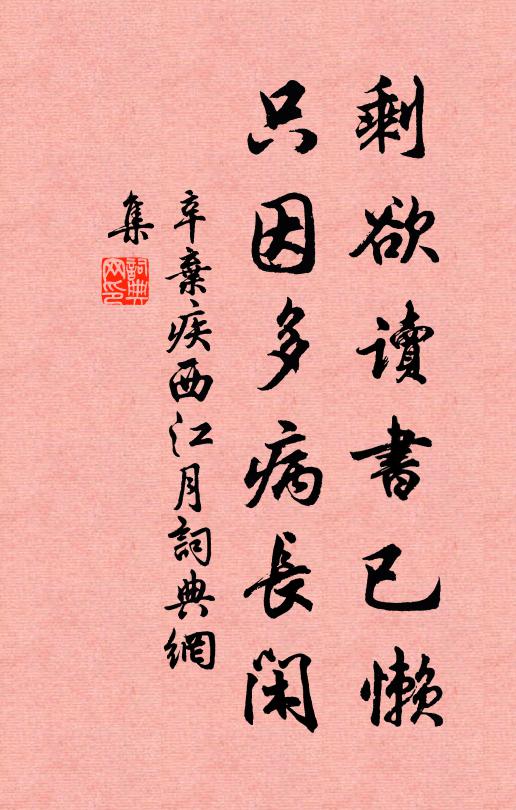 剩欲讀書已懶
只因多病長閑
辛棄疾西江月詞典網
集
詞典網印